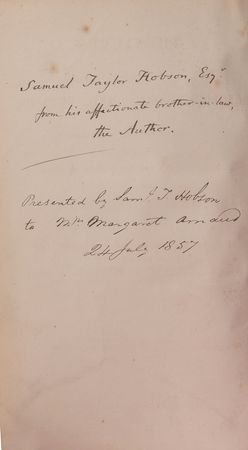 Samuel Taylor Hobson, Esqr.
from his affectionate brother-in-law,
the Author.
Presented by Saml. T Hobson
to Mrs Margaret Arnaud
24 July 1857